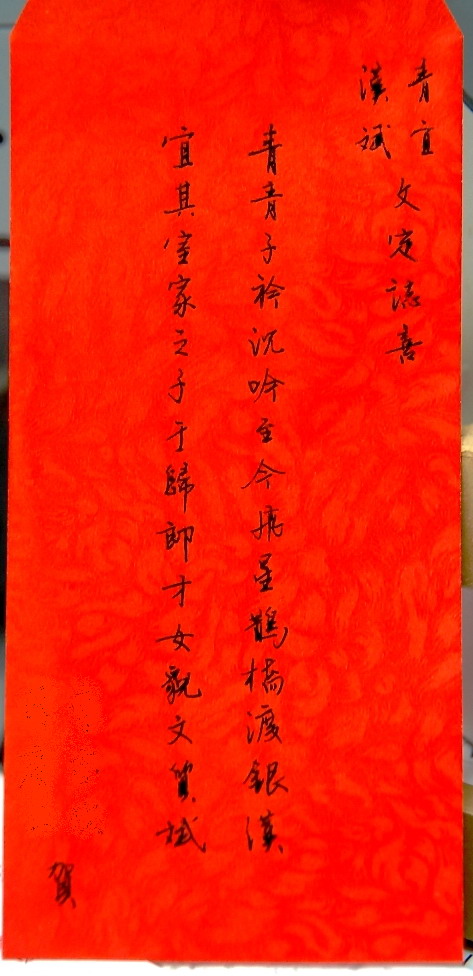 青宜
漢斌
文定誌喜
青青子衿沈吟至今星鵲橋渡銀漢
宜其室家之子于歸郎才女貌文質斌
賀